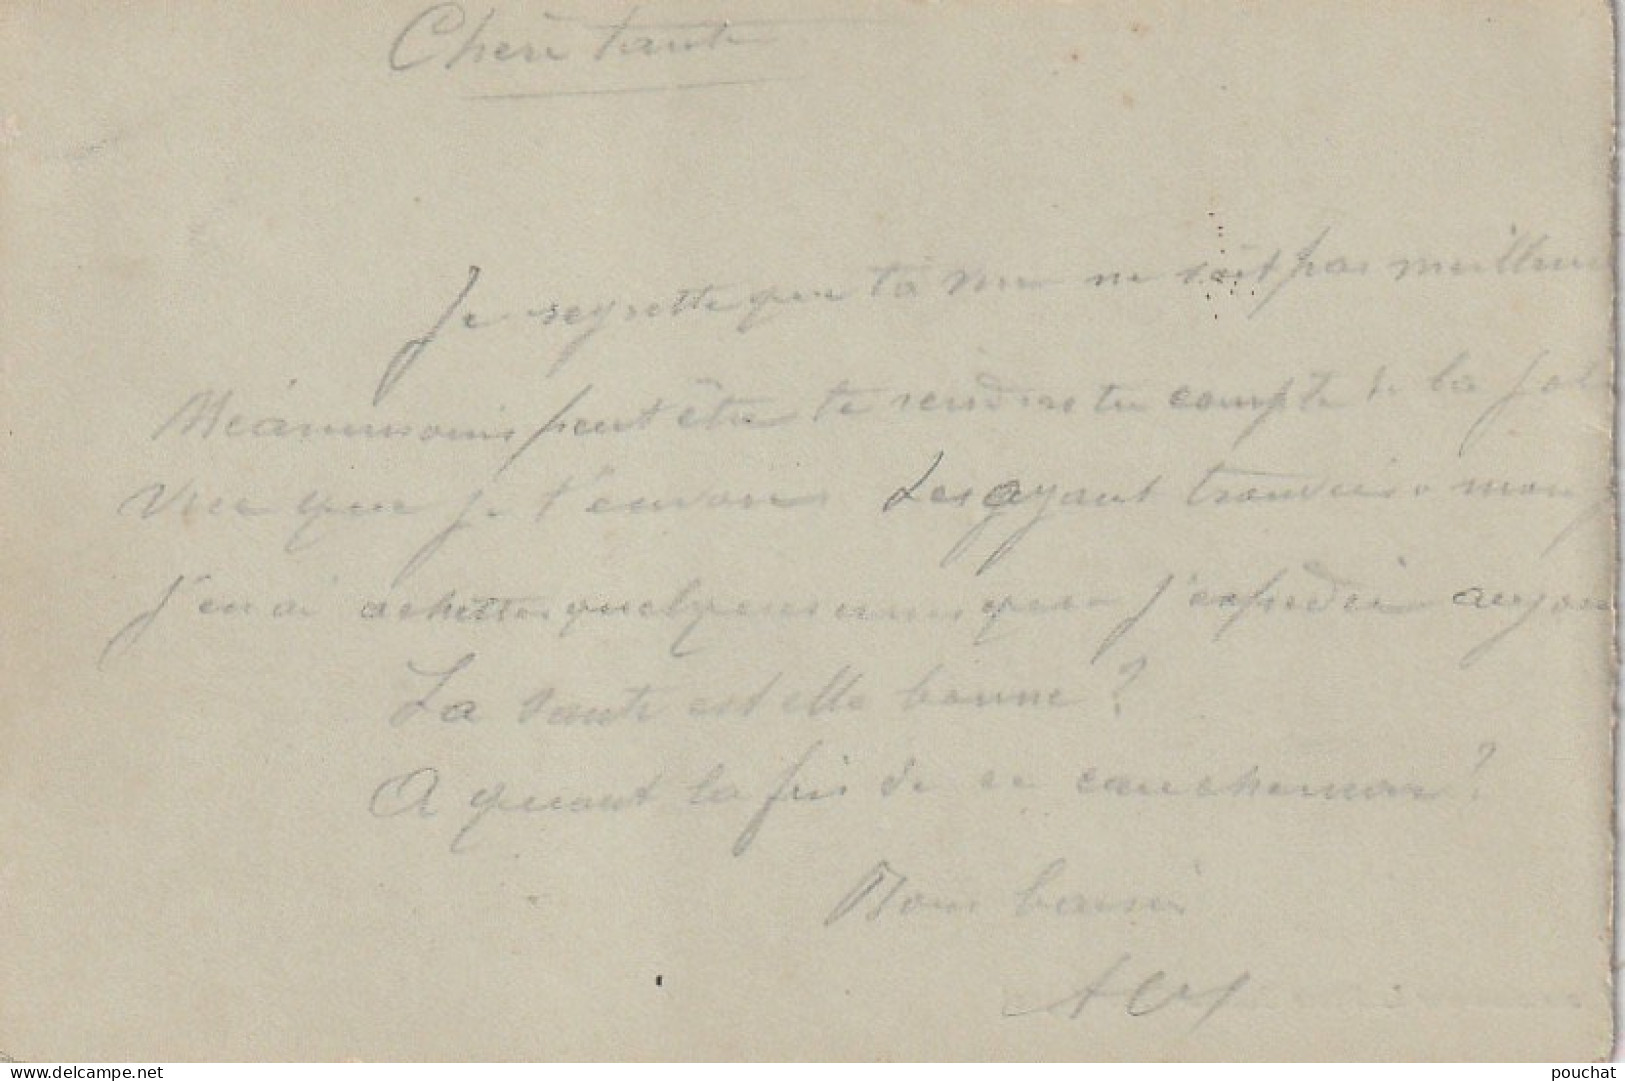 Chère tante
Je regrette que ta vue ne soit pas meilleure
Néanmoins peut être te rendras tu compte de la jolie
vue que je t'envoie Les ayant trouvées a mon
j'en ai achettes quelques unes que j'expedie aujour
La Sante est elle bonne?
A quant la fin de ce cauchemar?
Bons baisers
delcampe.net
pouchat